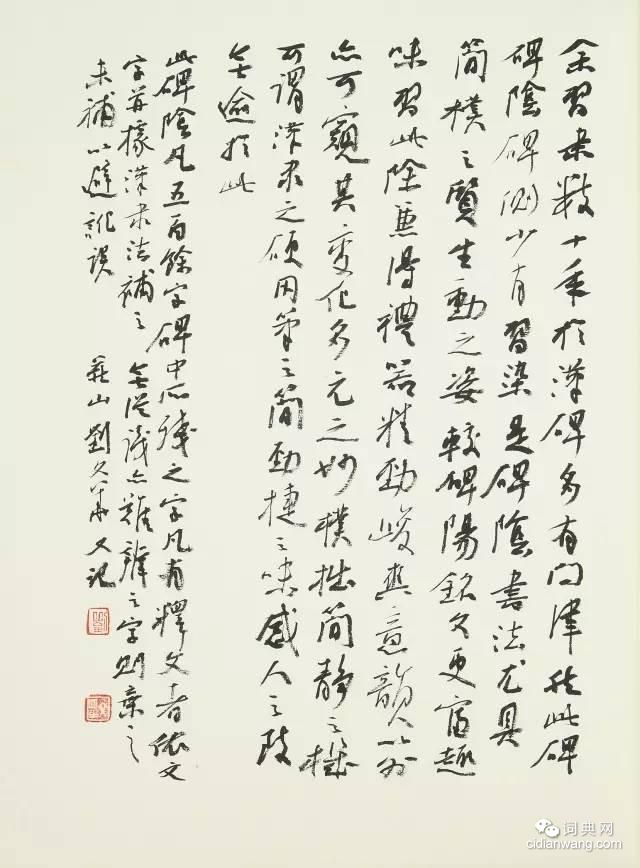 余習隶数十年於漢碑多有问津然此碑
碑陰碑側少有習染是碑陰書法尤具
簡樸之質生動之姿較碑陽銘文更富趣
味習此除兼得禮器精勁峻爽意韻以外
亦可窺其变化多元之妙樸拙簡静之機
可謂漢隶之碩用筆之簡勁捷之味感人之
無逾於此
此碑陰凡五百餘字碑中所殘之字凡有釋文者依文
字并據漢隶法補之無從識亦難辨之字則棄之
未補以避訛誤 燕山劉文華又記
词典网
cidianwang.com